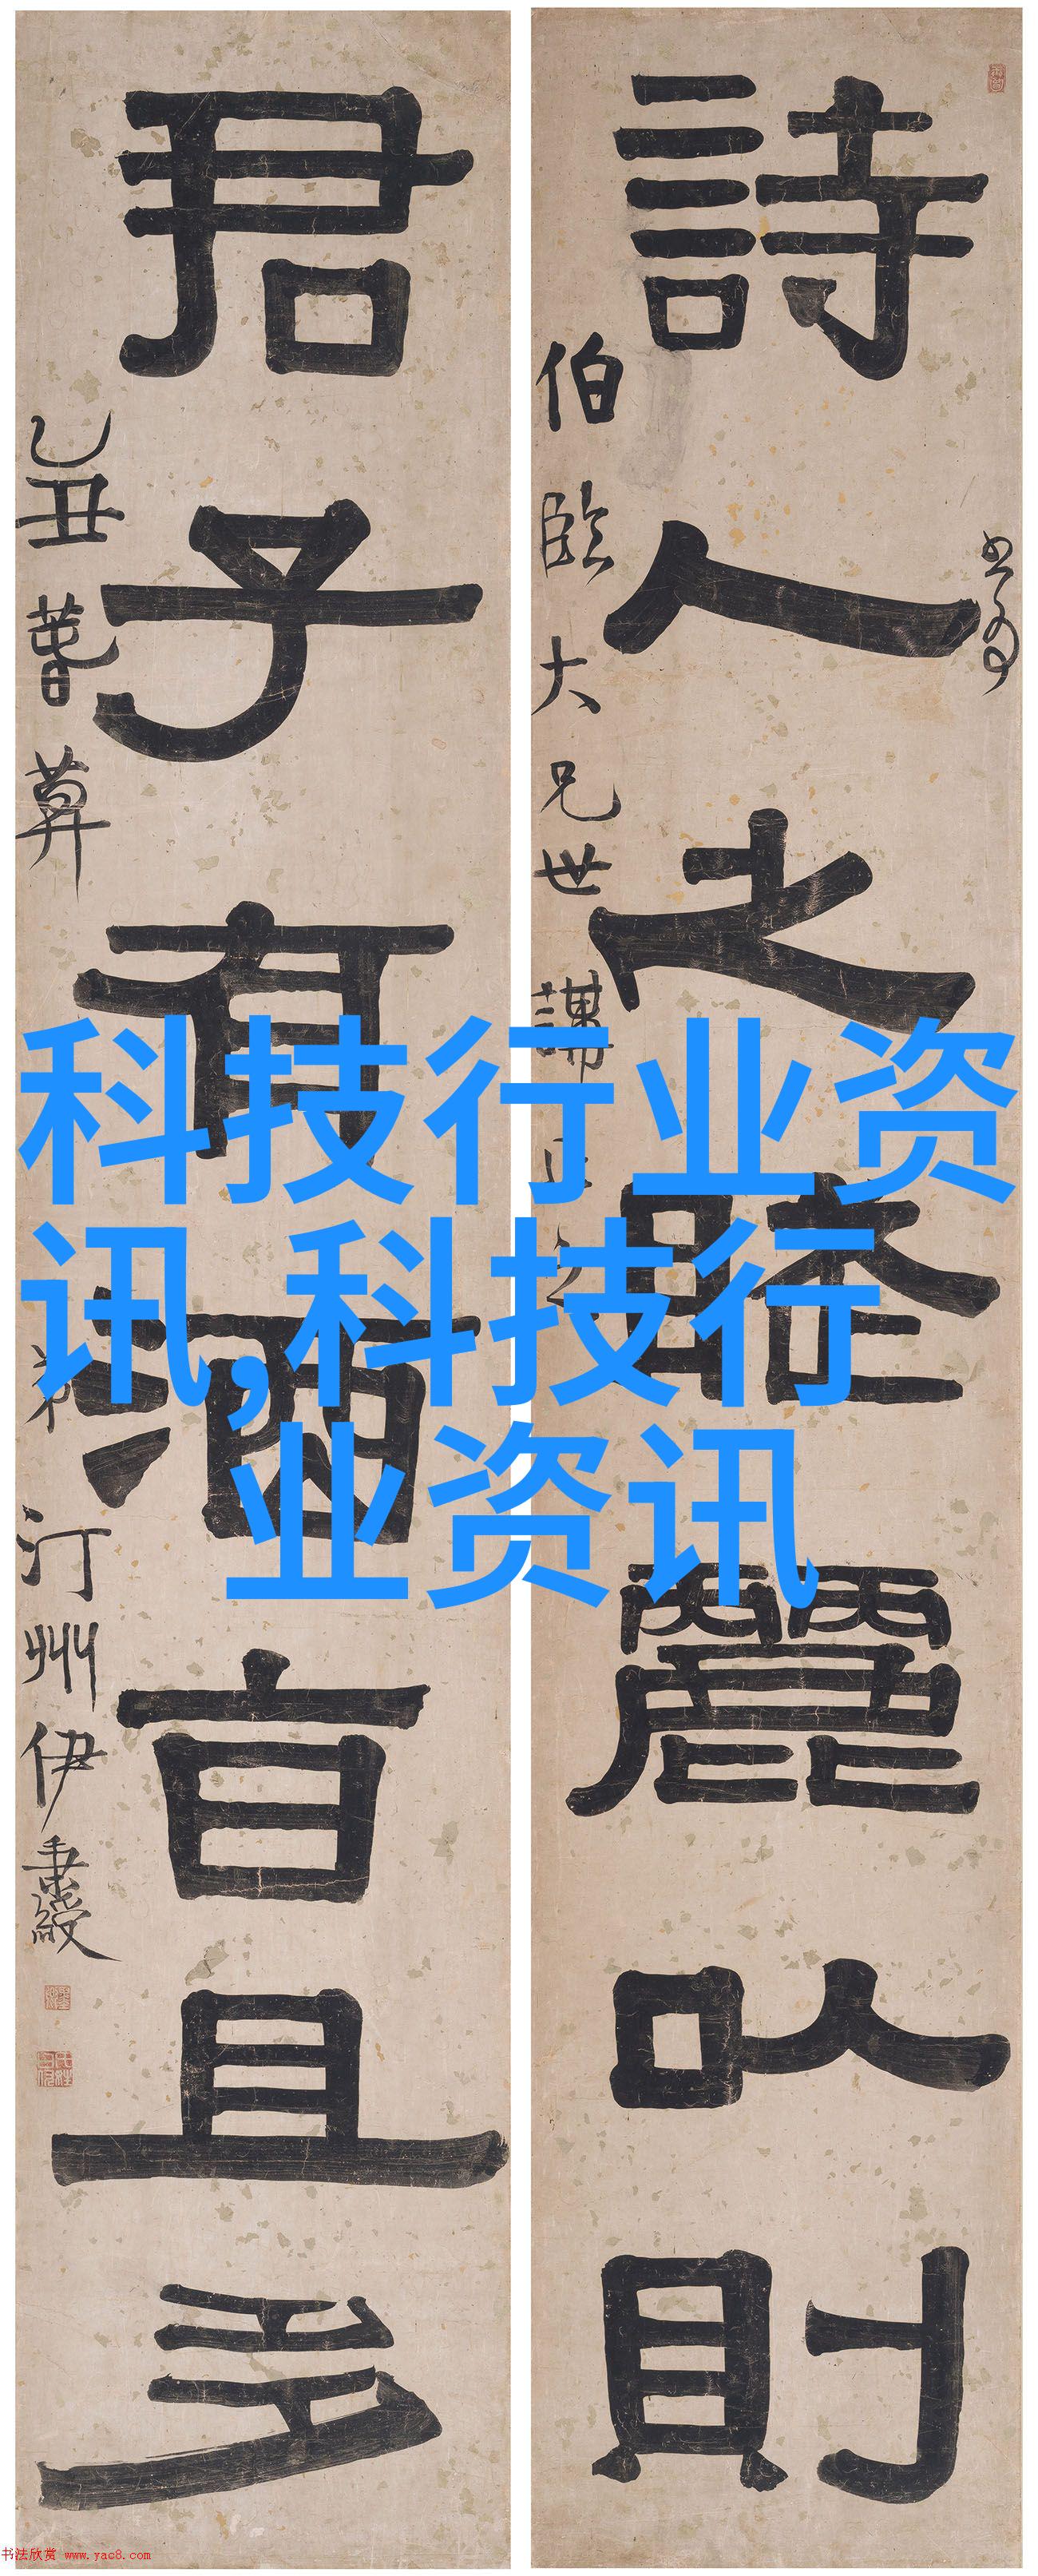 詩人之賦麗以則
伯臨大兄世講正之
君子有酒旨且多
乙丑暮春算
弟汀州伊秉綬
科技行业资
讯,科技行
业资讯
书法欣赏 www.yac8.com